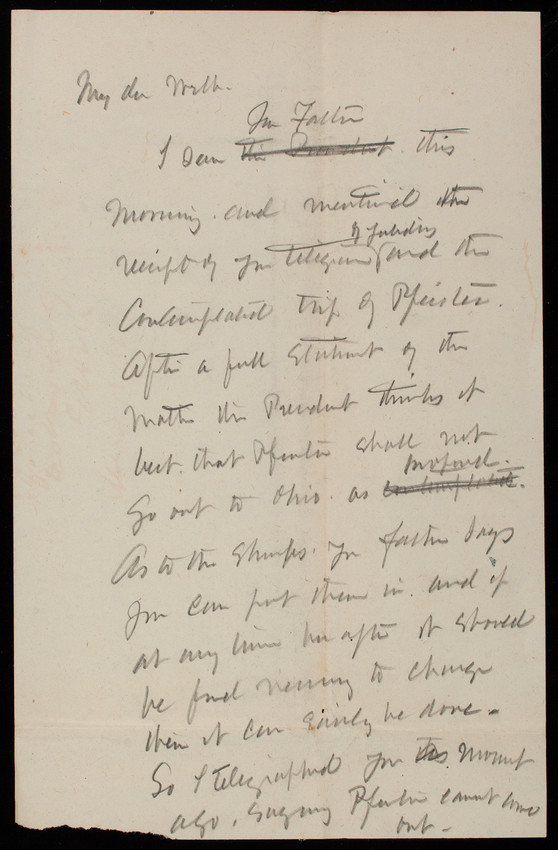 My dear Webb.
Your Father
I saw the President. this
Morning. and mentioned the
of yesterday
receipt of your telegram and the
Contemplated trip of Pfister.
After a full statement of the
matter the President thinks it
best. that Pfister shall not
proposed.
Go out to Ohio. as contemplated.
As to the shrubs. your father says
you can put them in. and if
at any time hereafter it should
be found necessary to change
them it can easily be done.
So I telegraphed you this moment
ago, saying Pfister cannot come
out.